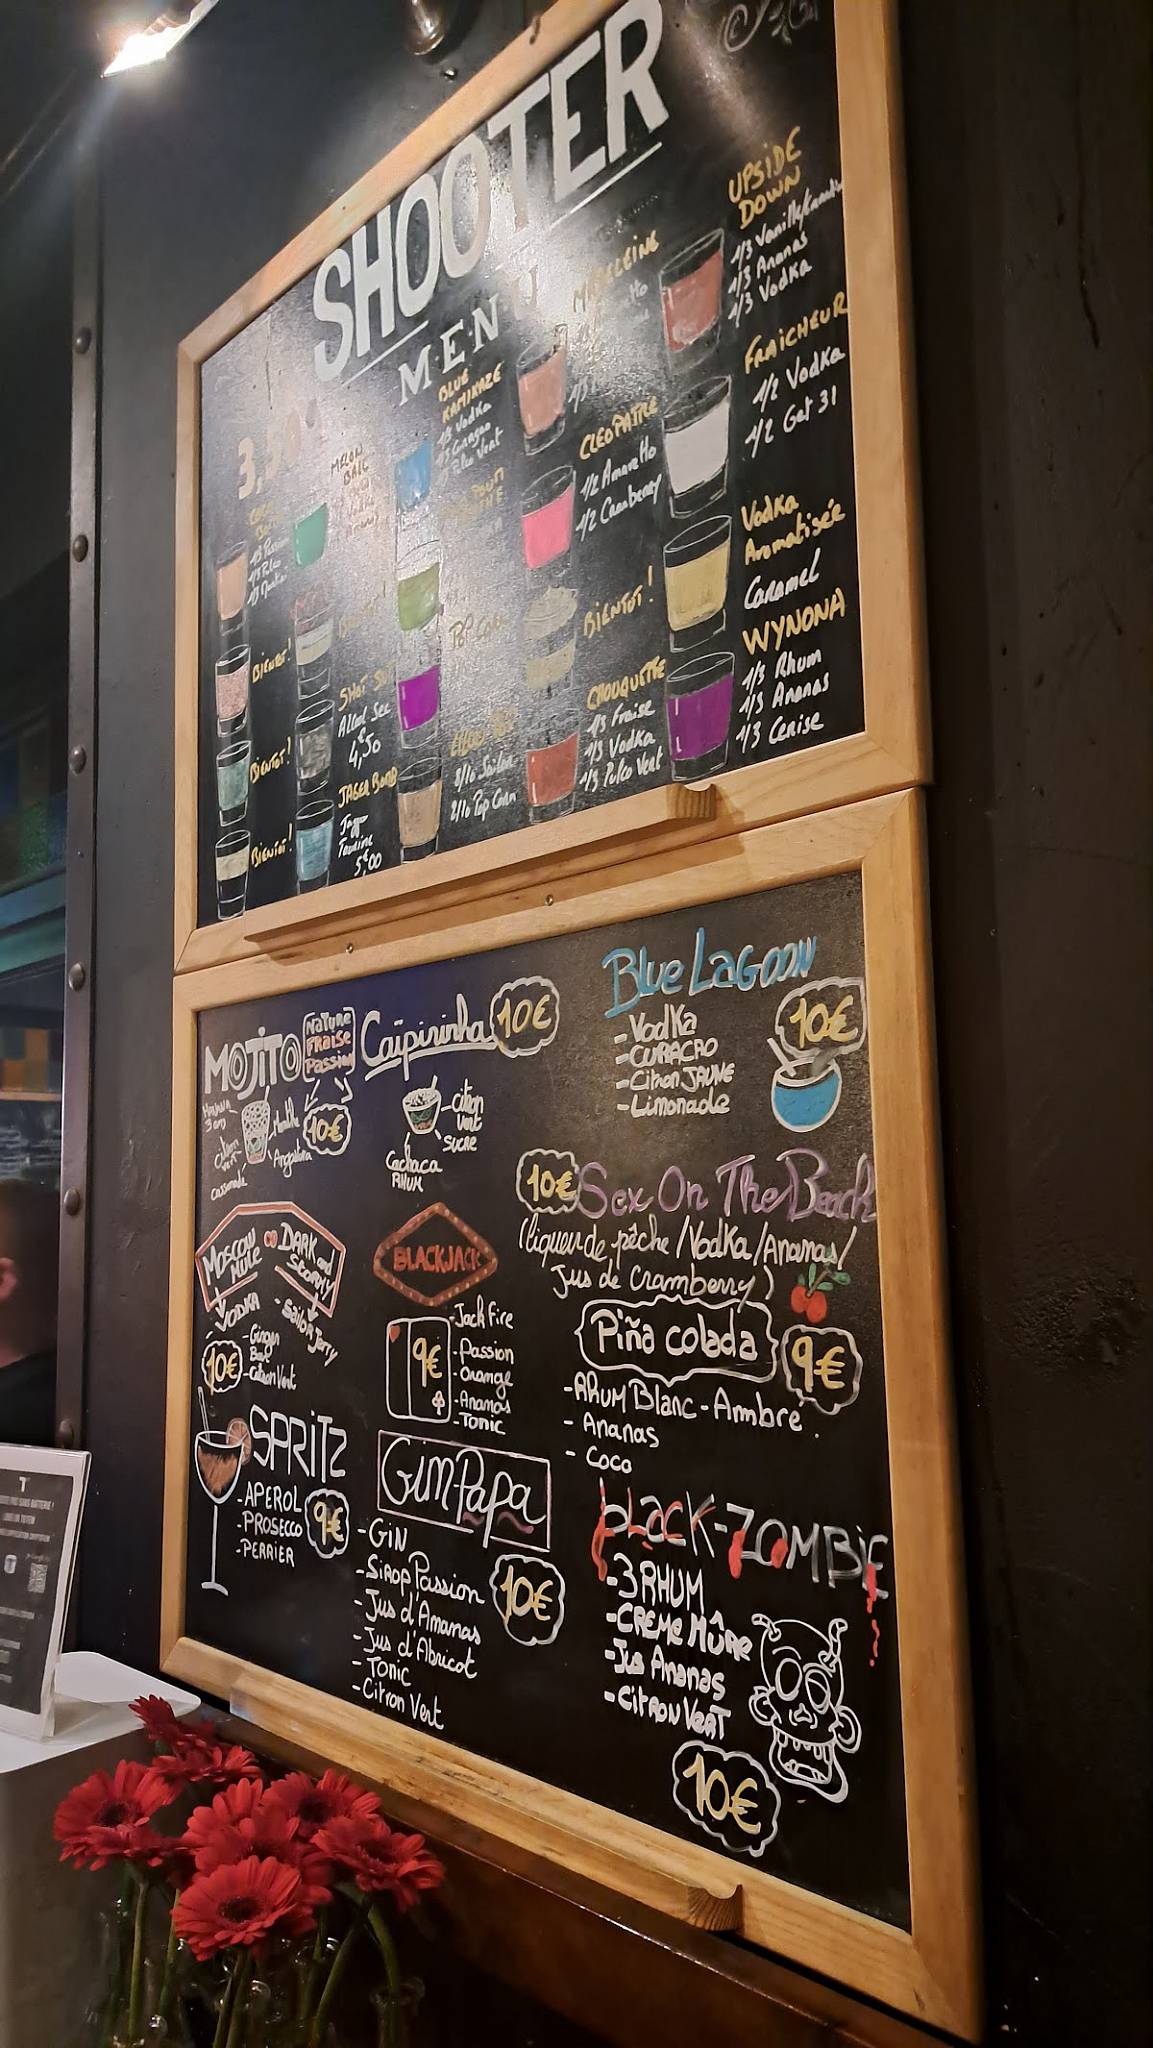 SHOOTER
MENU
3,50
MELON
BALL
BLUE
KAMIKAZE
Vodka
Curaçao
Pulco Vert
MADELEINE
UPSIDE
DOWN
1/3 Ananas
1/3 Vodka
CLEOPATRE
1/2 Amaretto
1/2 Cramberry
FRAICHEUR
1/2 Vodka
1/2 Get 31
BIENTOT!
BIENTOT!
BIENTOT!
SHOT
Alcool Sec
4,50
JAGER BOMB
5€00
POP CORN
2/10 Pop Corn
BIENTOT!
CHOUQUETTE
1/3 Fraise
1/3 Vodka
1/3 Pulco Vert
Vodka
Aromatisée
Caramel
WYNONA
1/3 Rhum
1/3 Ananas
1/3 Cerise
MOJITO
NATURE
FRAISE
PASSION
10€
Havana
3 ans
Menthe
Citron
vert
Angostura
Cassonade
Caïpirinha
10€
citron
vert
sucre
Cachaca
RHUM
BLUE LAGOON
10€
- Vodka
- CURACAO
- Citron JAUNE
- Limonade
10€
Sex On The Beach
(liqueur de pêche/Vodka/Ananas/
Jus de Cramberry)
MOSCOW
MULE
OU
DARK and
STORMY
VODKA
- Sailor Jerry
- Ginger
Beer
- Citron Vert
10€
BLACKJACK
9€
- Jack Fire
- Passion
- Orange
- Ananas
- Tonic
Piña colada
9€
- RHum Blanc - Ambré
- Ananas
- Coco
SPRITZ
- APEROL
- PROSECCO
- PERRIER
9€
GIMPAPA
- GIN
- Sirop Passion
- Jus d'Ananas
- Jus d'Abricot
- Tonic
- Citron Vert
10€
BLACK-ZOMBIE
- 3 RHUM
- CREME MÛRE
- Jus Ananas
- CITRON VERT
10€